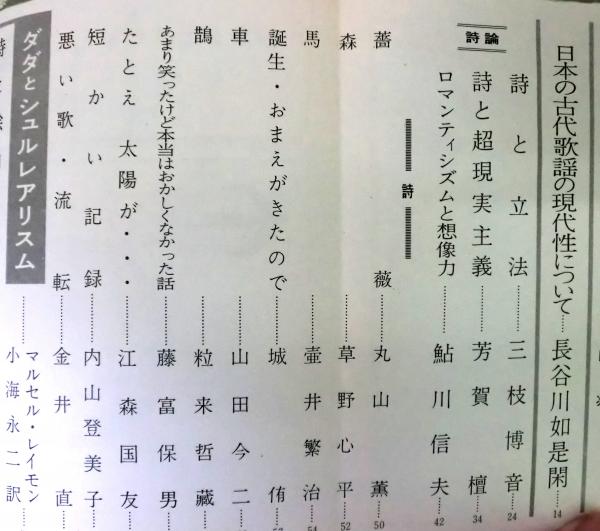 日本の古代歌謡の現代性について……長谷川如是閑……14
詩論
詩と立法……三枝博音……24
詩と超現実主義……芳賀檀……34
ロマンティシズムと想像力……鮎川信夫……42
詩
薔薇……丸山薫……50
森……草野心平……52
馬……壷井繁治……54
誕生・おまえがきたので……城侑
車……山田今二
鵲……粒来哲蔵
あまり笑ったけど本当はおかしくなかった話……藤富保男
たとえ 太陽が・・・……江森国友
短かい記録……内山登美子
悪い歌・流転……金井直
ダダとシュルレアリスム……マルセル・レイモン
小海永二訳